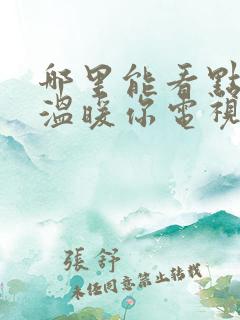 哪里能看點
溫暖你電視
張舒
未經同意禁止轉載